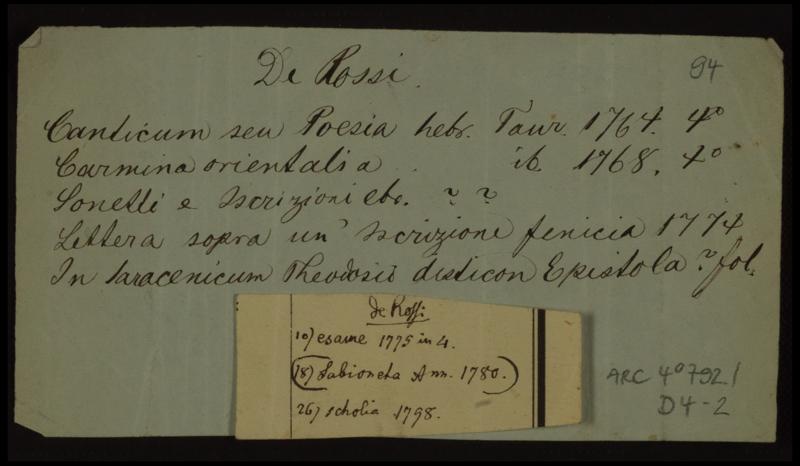 De Rossi.
94
Canticum seu Poesia hebr. Taur. 1764. 4°
Carmina orientalia . . ib. 1768. 4°
Sonetti e Iscrizioni ebr. ? ?
Lettera sopra un' Iscrizione fenicia 1774
In Saracenicum Theodosii disticon Epistola ? fol.
de Rossi
10) esame 1775 in 4.
(18) Sabioneta Ann. 1780.)
26) scholia 1798.
ARC 4° 792 /
D4-2